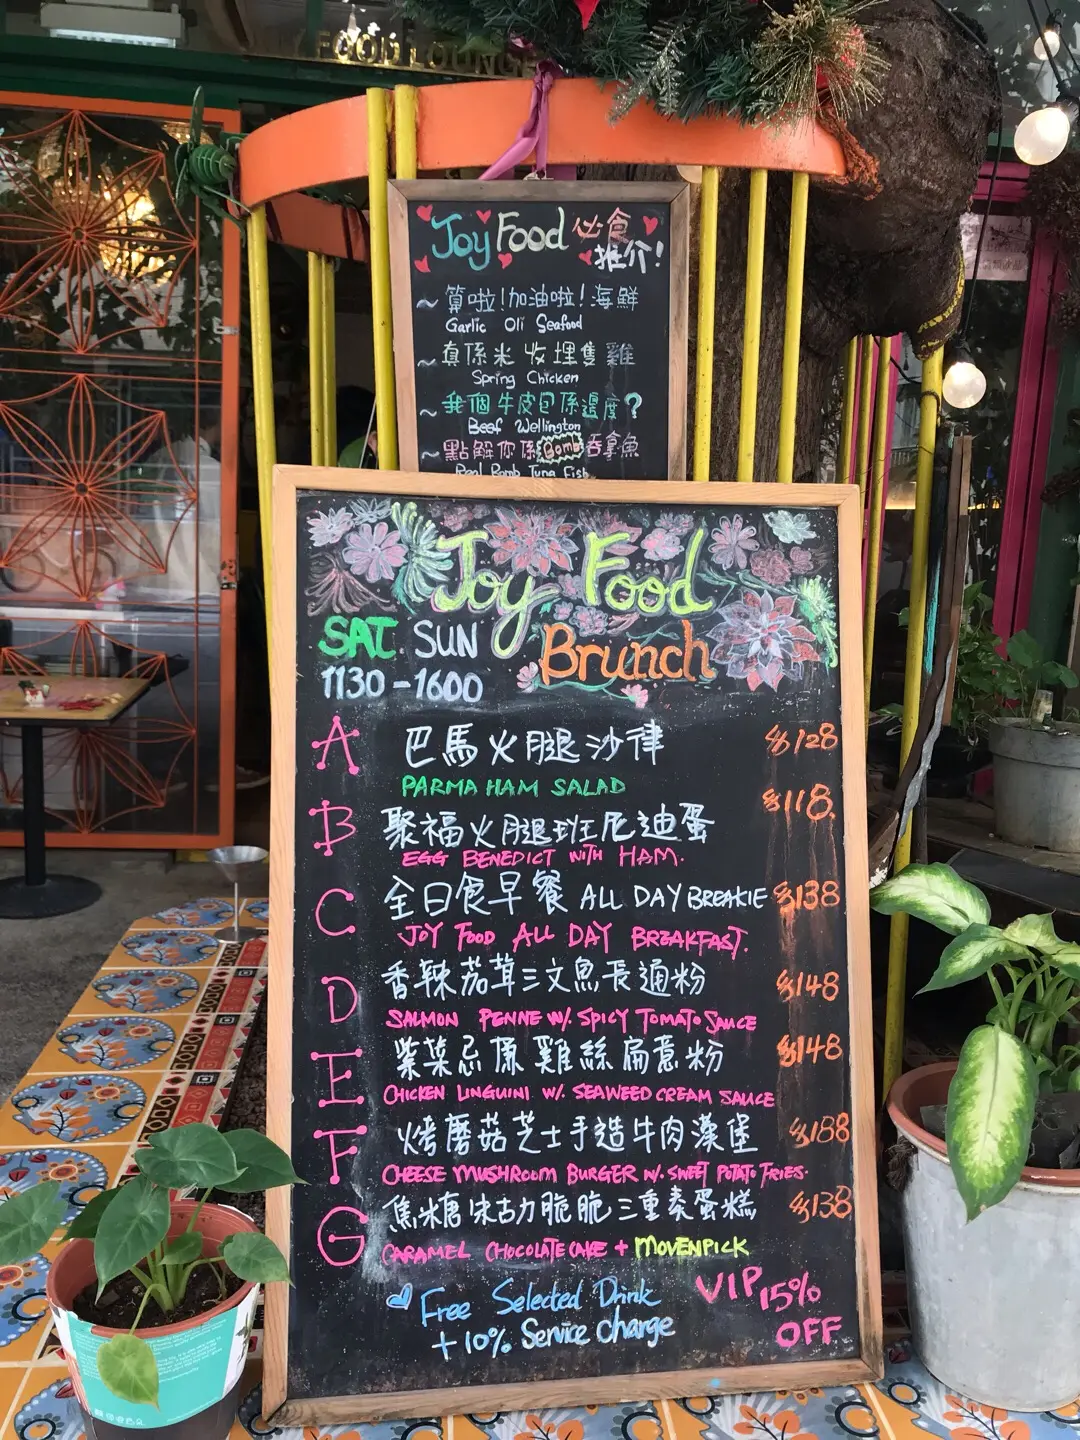 FOOD LOUNGE
Joy Food 必食
推介!
~ 算啦!加油啦!海鮮
Garlic Oli Seafood
~ 真係米收埋隻雞
Spring Chicken
~ 我個牛皮包係邊度?
Beef Wellington
~ 點解你係Bomb吞拿魚
Real Bomb Tuna Fish
Joy Food
SAT. SUN
Brunch
1130-1600
A 巴馬火腿沙律 $128
PARMA HAM SALAD
B 聚福火腿班尼迪蛋 $118.
EGG BENEDICT WITH HAM.
C 全日食早餐 ALL DAY BREAKIE $138
JOY FOOD ALL DAY BREAKFAST.
D 香辣茄茸三文魚長通粉 $148
SALMON PENNE W/. SPICY TOMATO SAUCE
E 紫菜忌廉雞絲扁意粉 $148
CHICKEN LINGUINI W/. SEAWEED CREAM SAUCE
F 烤磨菇芝士手造牛肉漢堡 $188
CHEESE MUSHROOM BURGER W/. SWEET POTATO FRIES.
G 焦糖朱古力脆脆三重奏蛋糕 $138
CARAMEL CHOCOLATE CAKE + MOVENPICK
Free Selected Drink
+10% Service charge
VIP 15%
OFF